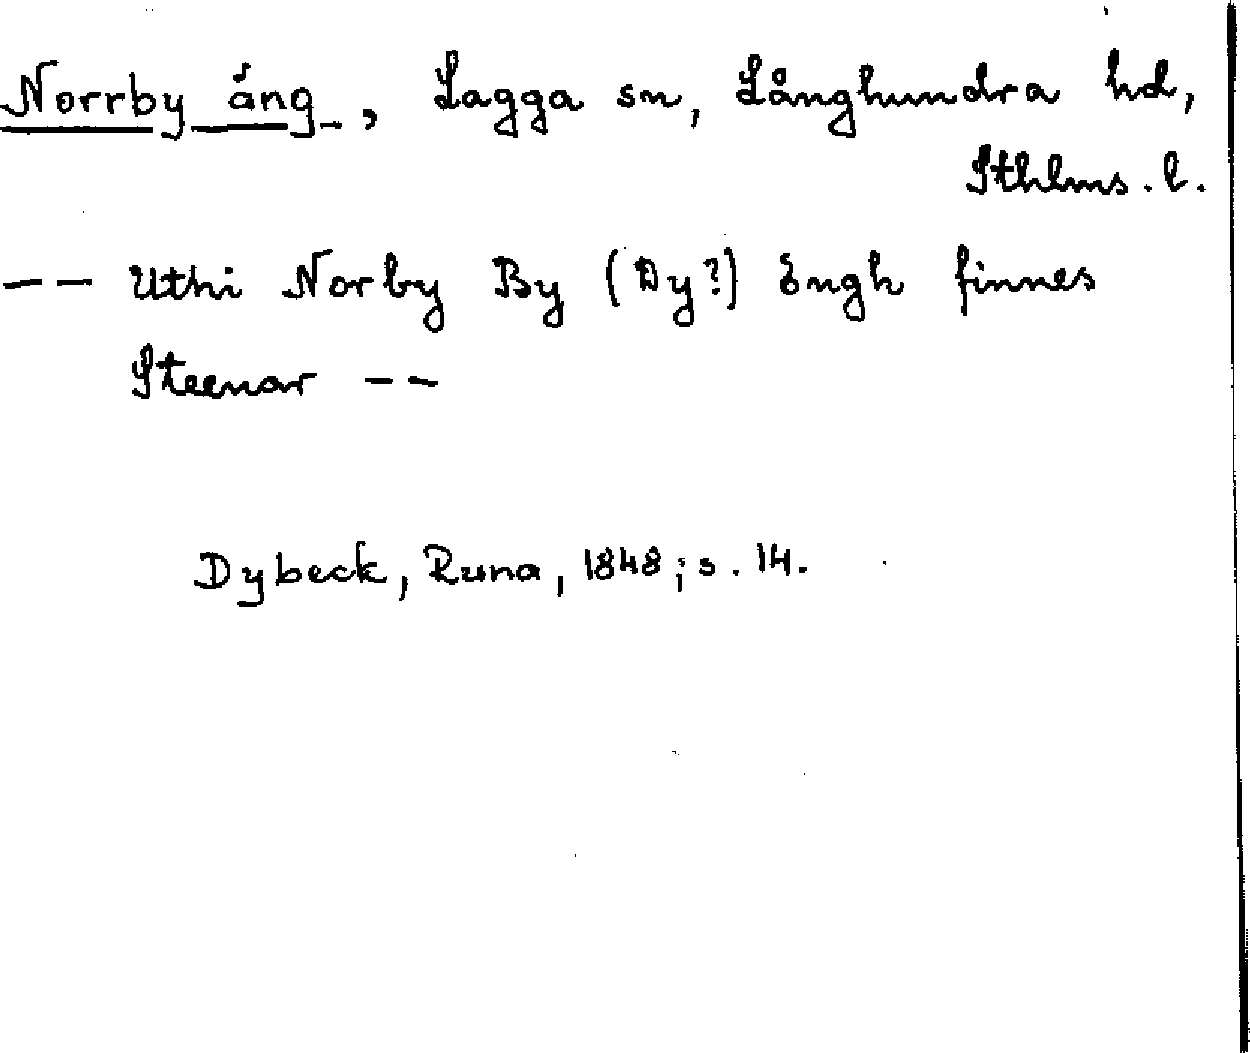 Norrby äng, Lagga sn, Långhundra hd,
Sthlms. l.
-- Uthi Norby By (Dy?) Engh finnes
Steenar --
Dybeck, Runa, 1848; s. 14.